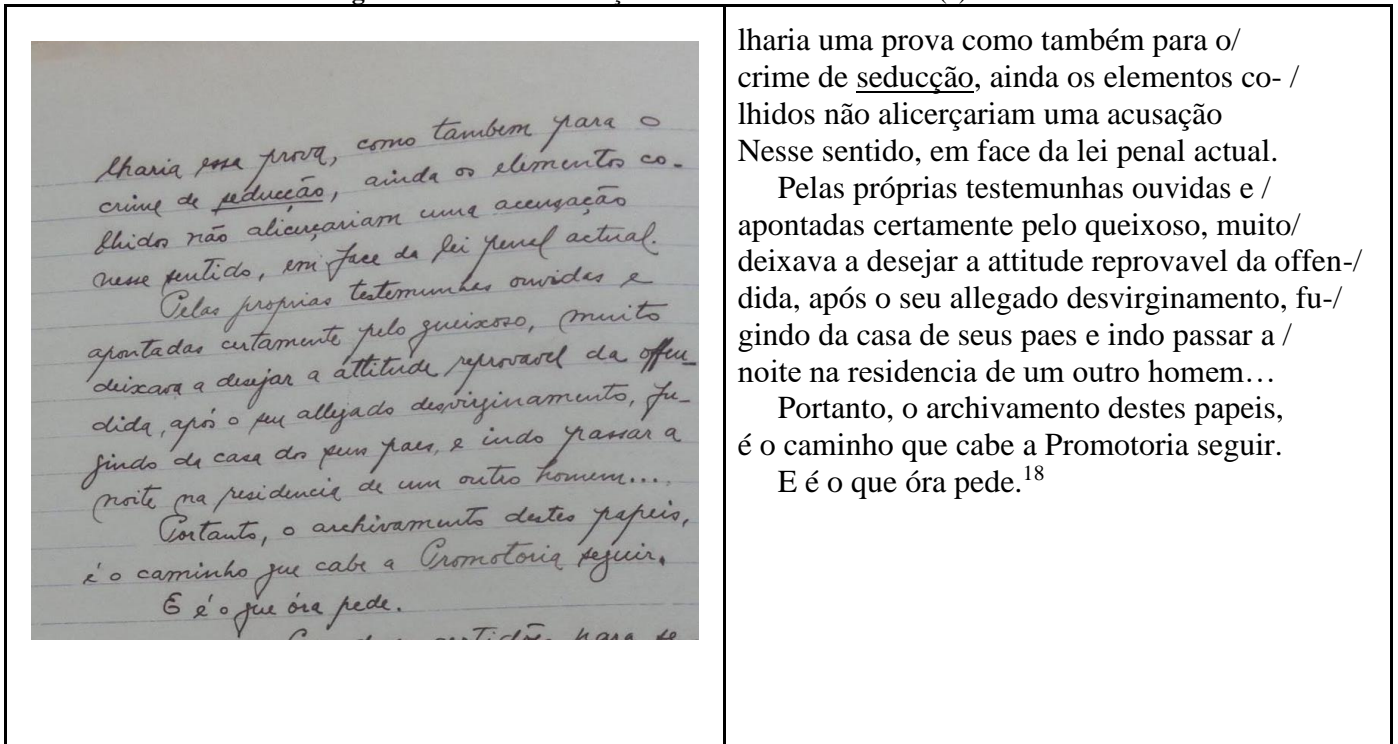 lharia essa prova, como tambem para o
crime de seducção, ainda os elementos co-
lhidos não alicerçariam uma accusação
nesse sentido, em face da lei penal actual.
Pelas proprias testemunhas ouvidas e
apontadas certamente pelo queixoso, muito
deixava a desejar a attitude reprovavel da offen-
dida, após o seu allegado desvirginamento, fu-
gindo da casa dos seus paes, e indo passar a
noite na residencia de um outro homem...
Portanto, o archivamento destes papeis,
é o caminho que cabe a Promotoria seguir.
E é o que óra pede.
certidões para se
lharia uma prova como também para o/
crime de seducção, ainda os elementos co- /
lhidos não alicerçariam uma acusação
Nesse sentido, em face da lei penal actual.
Pelas próprias testemunhas ouvidas e /
apontadas certamente pelo queixoso, muito/
deixava a desejar a attitude reprovavel da offen-/
dida, após o seu allegado desvirginamento, fu-/
gindo da casa de seus paes e indo passar a /
noite na residencia de um outro homem…
Portanto, o archivamento destes papeis,
é o caminho que cabe a Promotoria seguir.
E é o que óra pede.18